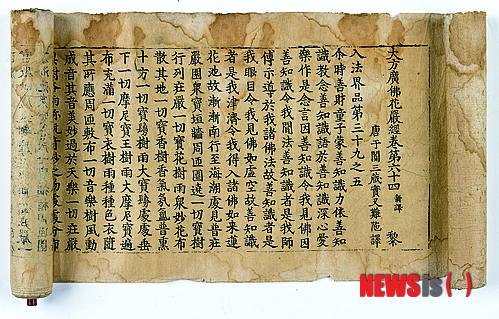 大方廣佛花嚴經卷第六十四 新譯 黎
唐于闐三藏實叉難陁譯
入法界品第三十九之五
尒時善財童子蒙善知識力依善知
識教念善知識語於善知識深心愛
樂作是念言因善知識令我見佛因
善知識令我聞法善知識者是我師
傅示導於我諸佛法故善知識者是
我眼目令我見佛如虛空故善知識
者是我津濟令我得入諸佛如來蓮
花池故漸漸南行至海潮處見普莊
嚴園衆寶垣牆周匝圍遶一切寶樹
行列莊嚴一切寶花樹雨衆妙花布
散其地一切寶香樹香氣氛氳普熏
十方一切寶鬘樹雨大寶鬘處處垂
下一切摩尼寶王樹雨大摩尼寶遍
布充滿一切寶衣樹雨種種色衣隨
其所應周匝敷布一切音樂樹風動
成音其音美妙過於天樂一切莊嚴
NEWSis()